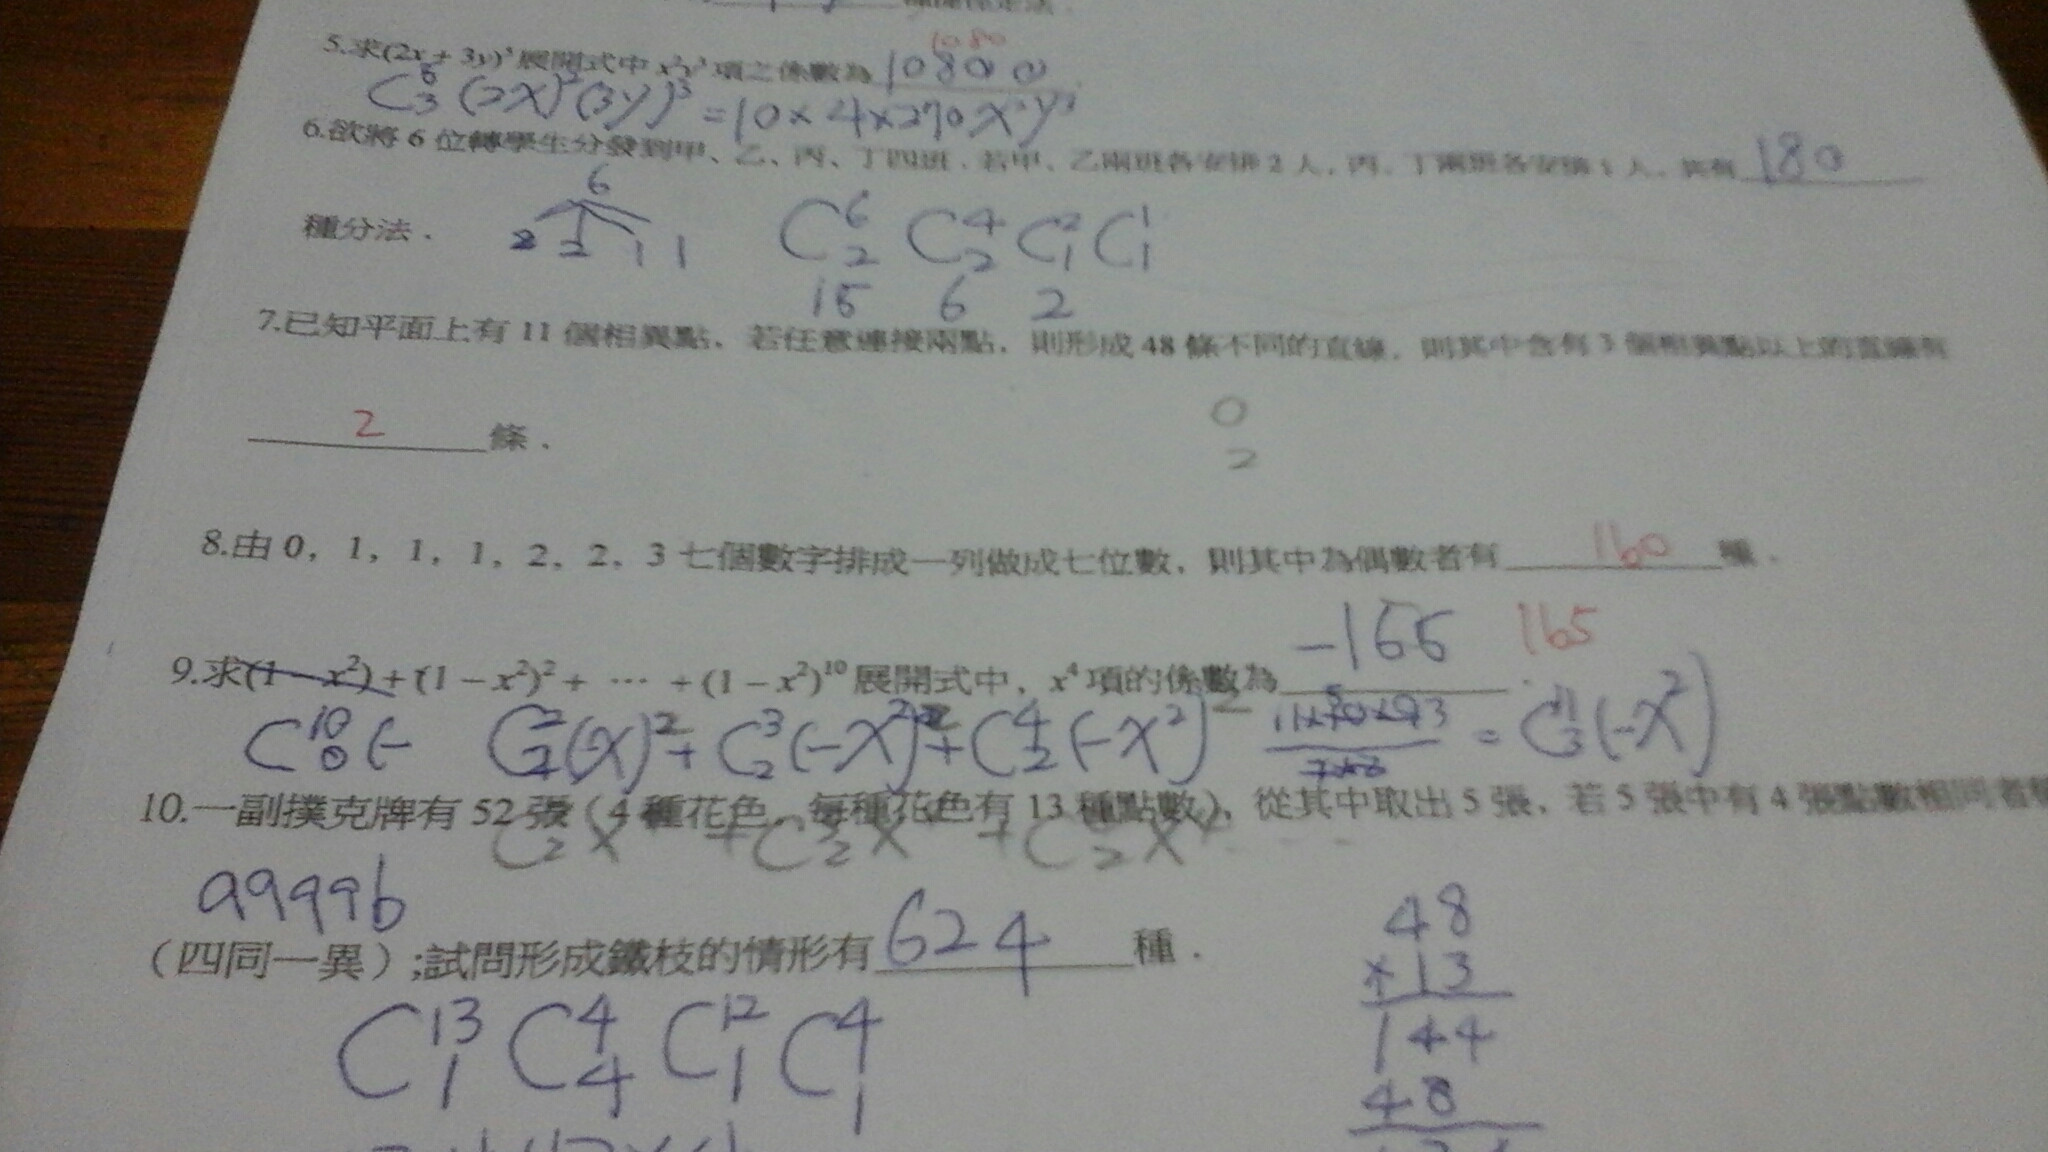 1080
5.求(2x + 3y)⁵展開式中 x²y³ 項之係數為 10800
C⁵₃ (2x)²(3y)³ = 10×4×270x²y³
6.欲將 6 位轉學生分發到甲、乙、丙、丁四班．若甲、乙兩班各安排 2 人，丙、丁兩班各安排 1 人，共有 180
種分法．
6
2 2 1 1
C⁶₂ C⁴₂ C²₁ C¹₁
15 6 2
7.已知平面上有 11 個相異點．若任意連接兩點，則形成 48 條不同的直線．則其中含有 3 個相異點以上的直線有
2 條．
0
2
8.由 0，1，1，1，2，2，3 七個數字排成一列做成七位數，則其中為偶數者有 160 種．
-165 165
9.求(1 − x²) + (1 − x²)² + ⋯ + (1 − x²)¹⁰ 展開式中，x⁴ 項的係數為
C¹⁰₀(- C²₂(-x)² + C³₂(-x²)² + C⁴₂(-x²)² = C¹¹₃(-x²)
10.一副撲克牌有 52 張（4 種花色，每種花色有 13 種點數），從其中取出 5 張，若 5 張中有 4 張點數相同者稱
aaaab
（四同一異）;試問形成鐵枝的情形有 624 種．
C¹³₁ C⁴₄ C¹²₁ C⁴₁
48
×13
144
48